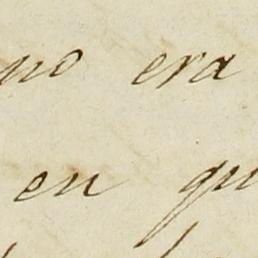 no era
en qu